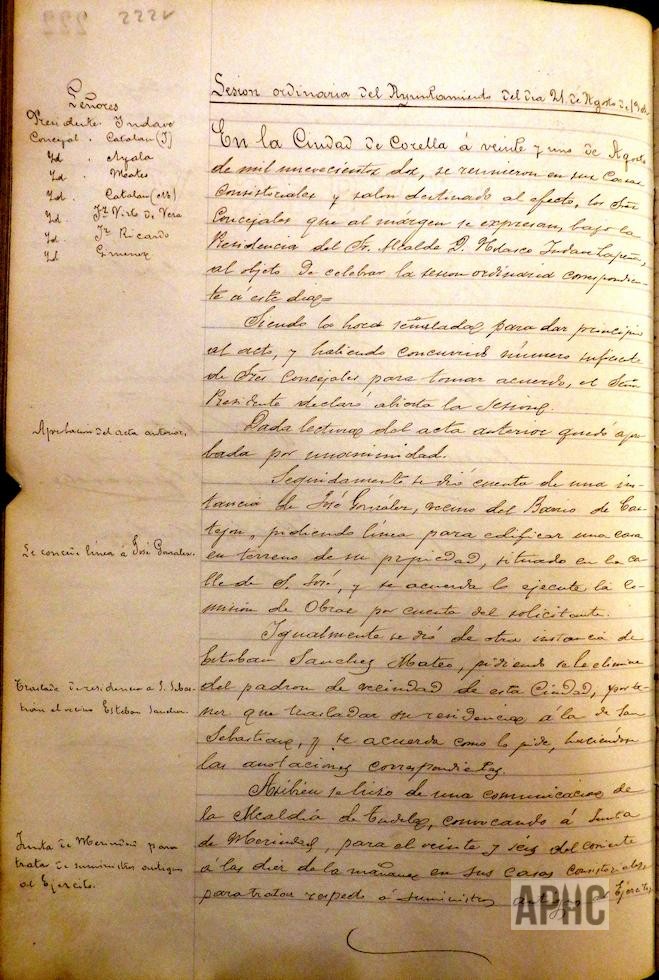 222v
Sesion ordinaria del Ayuntamiento del dia 21 de Agosto de 1902
Señores
Presidente Indavo
Concejal . Catalan (J)
Yd . Ayala
Yd . Montes
Yd . Catalan (M)
Yd . Fz Virto de Vera
Yd . Fz Ricardo
Yd Gimenez
En la Ciudad de Corella á veinte y uno de Agosto
de mil nuevecientos dos, se reunieron en sus Casas
Consistoriales y salon destinado al efecto, los Sres
Concejales que al márgen se expresan, bajo la
Presidencia del Sr. Alcalde D.
al objeto de celebrar la sesion ordinaria correspondien-
te á este dia=
Siendo la hora señalada para dar principio
al acto, y habiendo concurrido número suficte
de Sres Concejales para tomar acuerdo, el Señor
Presidente declaró abierta la Sesion.
Aprobacion del acta anterior,
Dada lectura del acta anterior quedó apro-
bada por unanimidad.
Seguidamente se dió cuenta de una ins-
tancia de José González, vecino del Barrio de Cas-
tejon, pidiendo línea para edificar una casa
Se concede línea á José Gonzalez.
en terreno de su propiedad, situado en la ca-
lle de S. José, y se acuerda lo ejecute la Co-
mision de Obras por cuenta del solicitante.
Igualmente se dió de otra instancia de
Esteban Sanchez Mateo, pidiendo se le elimine
Traslado de residencia á S. Sebas-
tián el vecino Esteban Sanchez
del padron de vecindad de esta Ciudad, por te-
ner que trasladar su residencia á la de San
Sebastian, y se acuerda como lo pide, haciendose
las anotaciones correspondietes.
Asibien se hizo de una comunicacion de
la Alcaldía de Tudela, convocando á Junta
Junta de Merindad para
tratar de suministros antiguos
al Ejército.
de Merindad, para el veinte y seis del coriente
á las diez de la mañana en sus casas consistoriales,
para tratar respecto á suministros antiguos al Ejército,
APHC